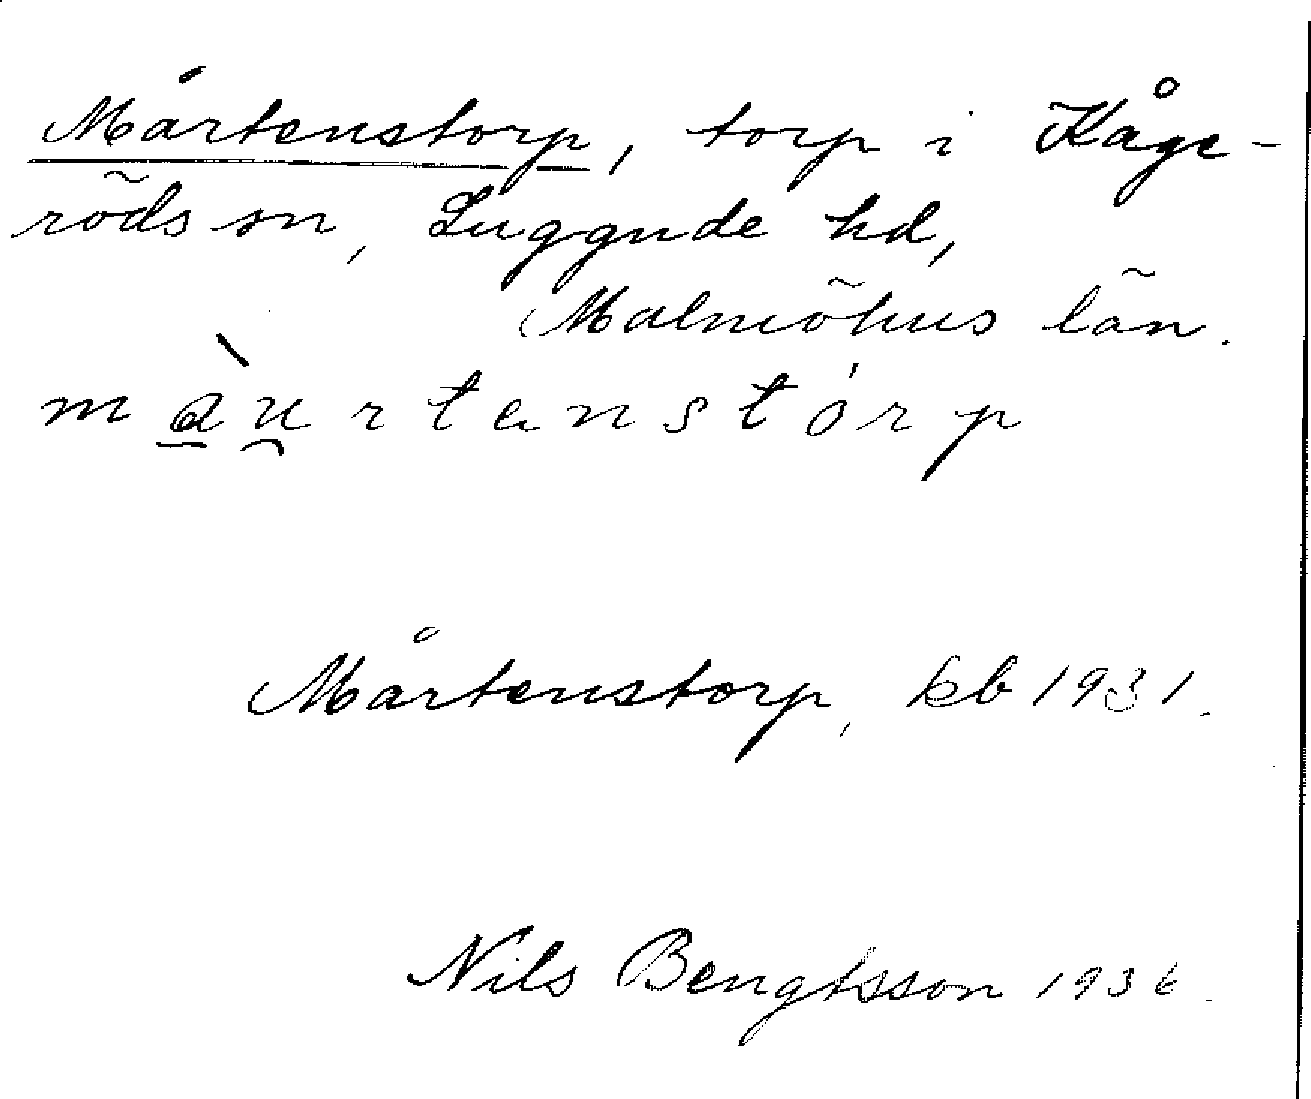 Mårtenstorp, torp i Kåge-
röds sn, Luggude hd,
Malmöhus län.
mà̱u̯rtenstórp
Mårtenstorp, kb 1931.
Nils Bengtsson 1936.